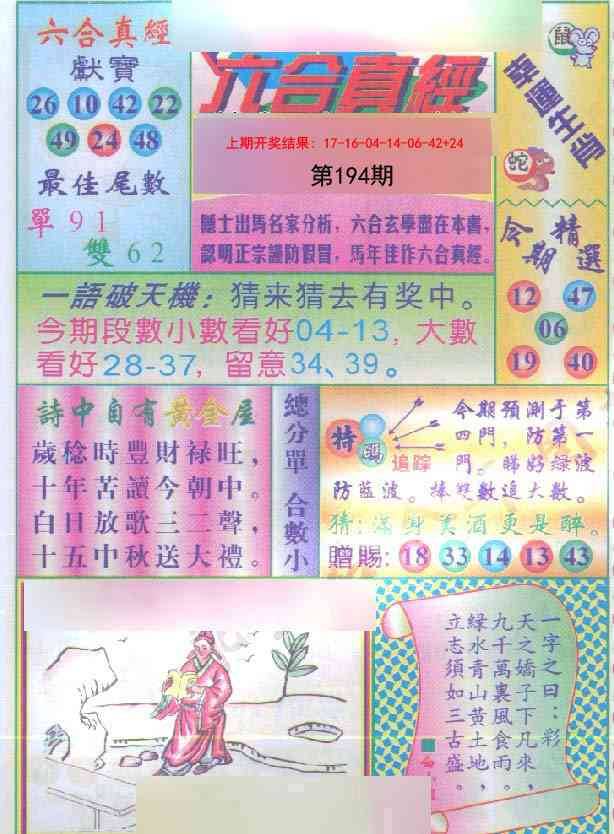 六合真經
獻寶
26 10 42 22
49 24 48
最佳尾數
單 9 1
雙 6 2
六合真經
上期开奖结果: 17-16-04-14-06-42+24
第194期
隱士出馬名家分析,六合玄學盡在本書,
認明正宗謹防假冒,馬年佳作六合真經。
鼠
幸運生肖
蛇
今期精選
12 47
06
19 40
一語破天機:猜来猜去有奖中。
今期段數小數看好04-13,大數
看好28-37,留意34、39。
詩中自有黃金屋
歲稔時豐財禄旺,
十年苦讀今朝中。
白日放歌三二聲,
十五中秋送大禮。
總分單 合數小
特碼
追踪
今期預測于第
四門,防第一
門。睇好绿波
防蓝波。捧雙數追大數。
猜:滿身美酒更是醉。
贈賜: 18 33 14 13 43
一字之曰:彩
天之嬌子下凡來,
九千萬裏風食雨,
緑水青山黄土地。
立志須如三古盛。